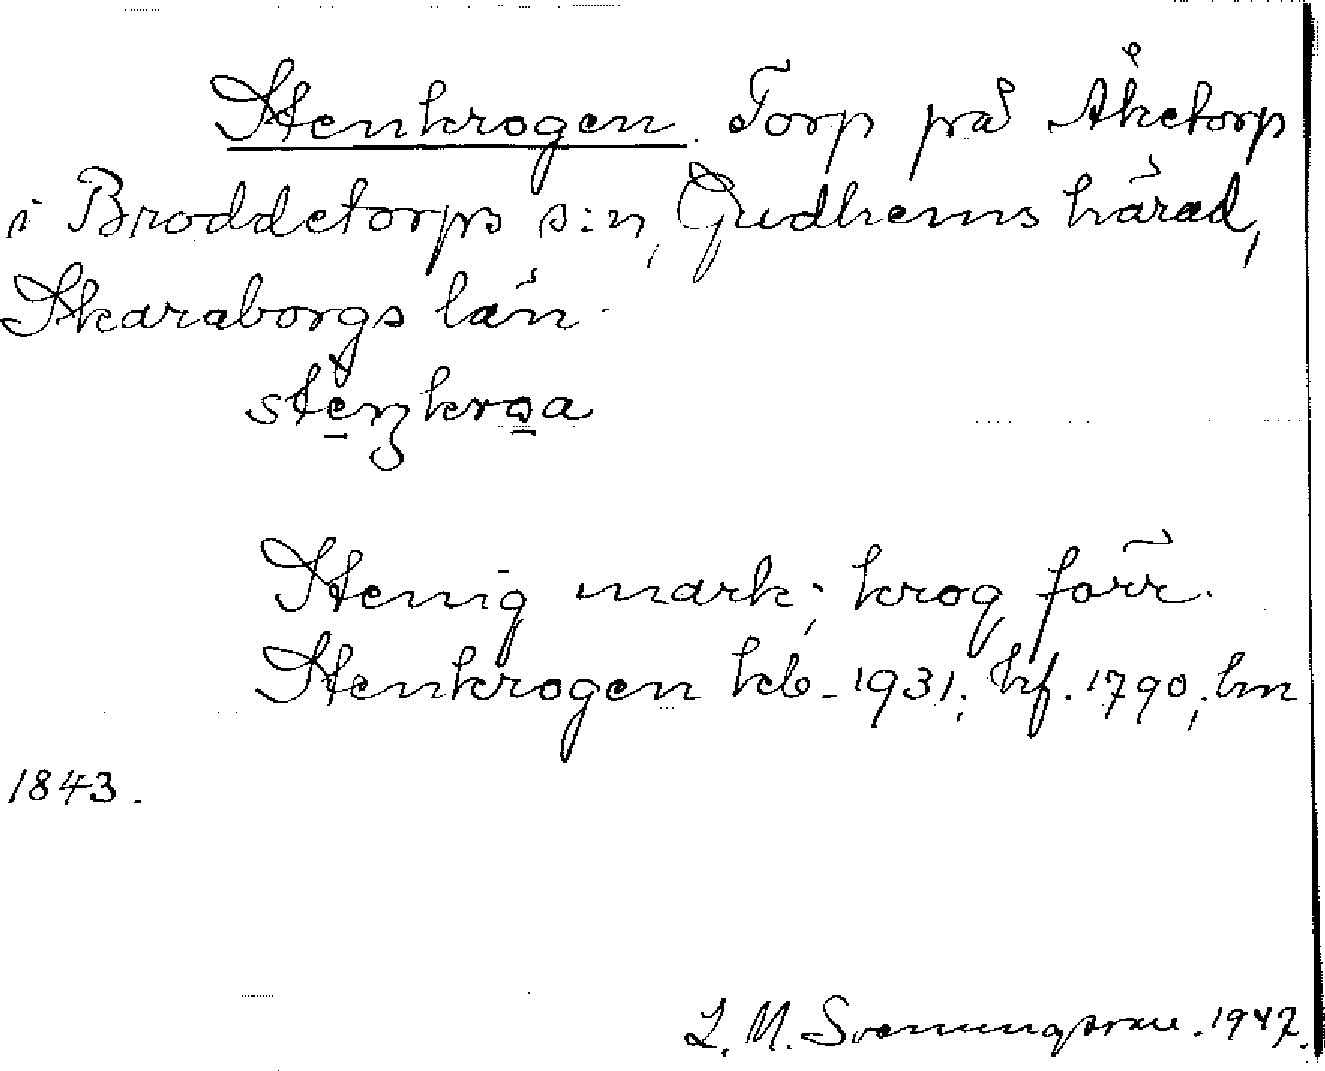 Stenkrogen. Torp på Åketorp
i Broddetorps s:n, Gudhems härad,
Skaraborgs län.
stęŋkrǫa
Stenig mark; krog förr.
Stenkrogen kb. 1931; hf. 1790; lm
1843.
L. M. Svenungsson. 1947.